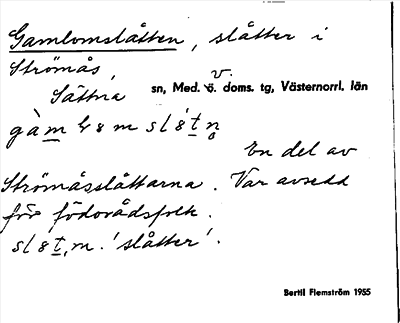 Gamlomslåtten, slåtter i
Strömås,
Sättna sn, Med. v. doms. tg, Västernorrl. län
En del av
Strömåsslåttarna. Var avsedd
för födorådsfolk.
'slåtter'.
Bertil Flemström 1955